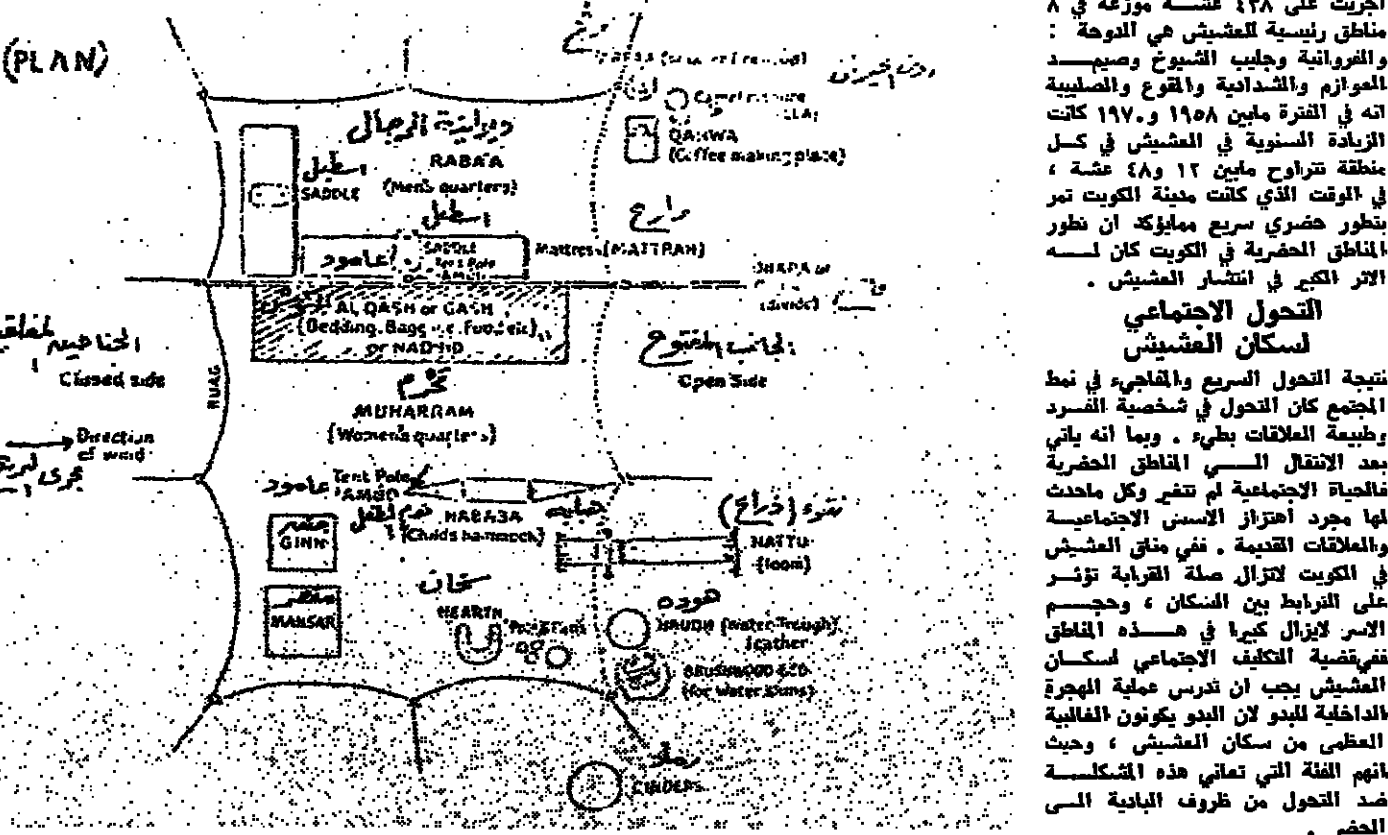 (PLAN)
ويرايزة الرجال
RABA'A
(Men's quarters)
اسطبل
SADDLE
اسطبل
SADDLE
Tent Pole
عامود
Mattress (MATTRAH)
QAHWA
(Coffee making place)
(divide)
AL QASH or GASH
(Bedding, Bags
Closed side
RUAG
محرم
MUHARRAM
(Women's quarters)
Open Side
Direction
of wind
Tent Pole
عامود
(Childs hammock)
GINN
MANSAR
HEARTH
NATTU
(loom)
هوده
HAUDH (Water Trough)
leather
BRUSHWOOD BED
(for water skins)
CINDERS
اجريت على ٤٣٨ عشـــة موزعة في ٨
مناطق رئيسية للعشيش هي الدوحة :
والفروانية وجليب الشيوخ وصيهـــد
العوازم والشدادية والمقوع والصليبية
انه في الفترة مابين ١٩٥٨ و١٩٧٠ كانت
الزيادة السنوية في العشيش في كـــل
منطقة تتراوح مابين ١٢ و٤٨ عشة ،
في الوقت الذي كانت مدينة الكويت تمر
بتطور حضري سريع ممايؤكد ان تطور
المناطق الحضرية في الكويت كان لـــه
الاثر الكبير في انتشار العشيش .
التحول الاجتماعي
لسكان العشيش
نتيجة التحول السريع والمفاجيء في نمط
المجتمع كان التحول في شخصية الفـــرد
وطبيعة العلاقات بطيء . وبما أنه ياتي
بعد الانتقال الـــى المناطق الحضرية
فالحياة الاجتماعية لم تتغير وكل ماحدث
لها مجرد أهتزاز الاسس الاجتماعيـــة
والعلاقات القديمة . ففي مناق العشيش
في الكويت لاتزال صلة القرابة تؤثـــر
على الترابط بين السكان ، وحجـــم
الاسر لايزال كبيرا في هـــذه المناطق
ففيقضية التكليف الاجتماعي لسكـــان
العشيش يجب ان تدرس عملية الهجرة
الداخلية للبدو لان البدو يكونون الغالبية
العظمى من سكان العشيش ، وحيث
انهم الفئة التي تعاني هذه المشكلـــة
ضد التحول من ظروف البادية الـــى
الحضر .